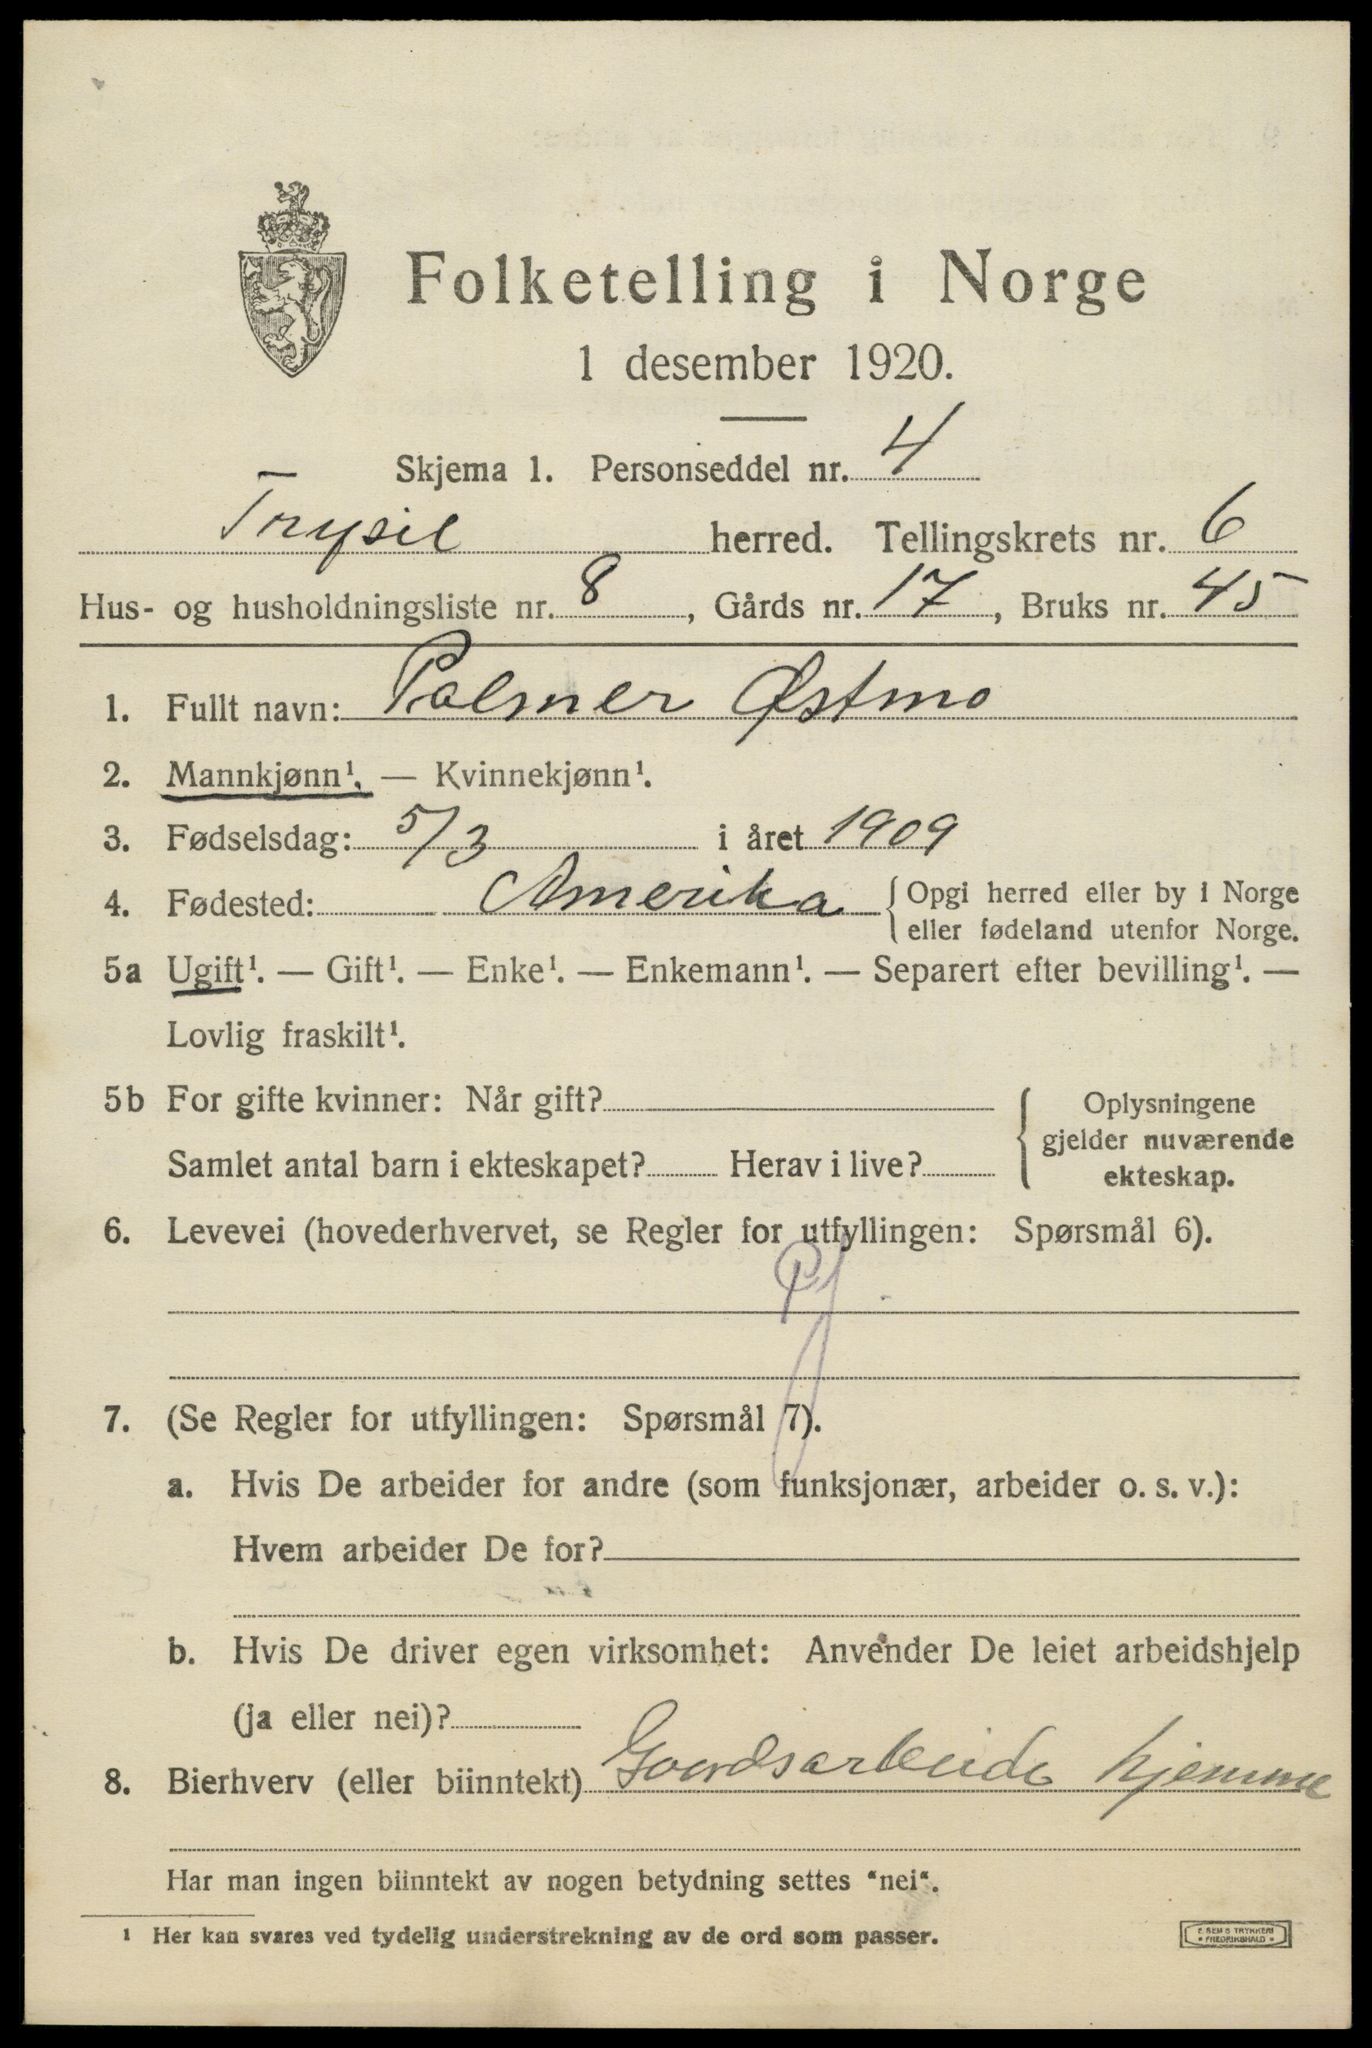 Folketelling i Norge
1 desember 1920.
Skjema 1. Personseddel nr. 4
Trysil herred. Tellingskrets nr. 6
Hus- og husholdningsliste nr. 8, Gårds nr. 17, Bruks nr. 45
1. Fullt navn: Palmer Østmo
2. Mannkjønn¹. — Kvinnekjønn¹.
3. Fødselsdag: 5/3 i året 1909
4. Fødested: Amerika { Opgi herred eller by i Norge
eller fødeland utenfor Norge.
5a Ugift¹. — Gift¹. — Enke¹. — Enkemann¹. — Separert efter bevilling¹. —
Lovlig fraskilt¹.
5b For gifte kvinner: Når gift?
Samlet antal barn i ekteskapet? Herav i live?
Oplysningene
gjelder nuværende
ekteskap.
6. Levevei (hovederhvervet, se Regler for utfyllingen: Spørsmål 6).
7. (Se Regler for utfyllingen: Spørsmål 7).
a. Hvis De arbeider for andre (som funksjonær, arbeider o. s. v.):
Hvem arbeider De for?
b. Hvis De driver egen virksomhet: Anvender De leiet arbeidshjelp
(ja eller nei)?
8. Bierhverv (eller biinntekt) Gaardsarbeide hjemme
Har man ingen biinntekt av nogen betydning settes "nei".
¹ Her kan svares ved tydelig understrekning av de ord som passer.
E SEM'S TRYKKERI
FREDRIKSHALD